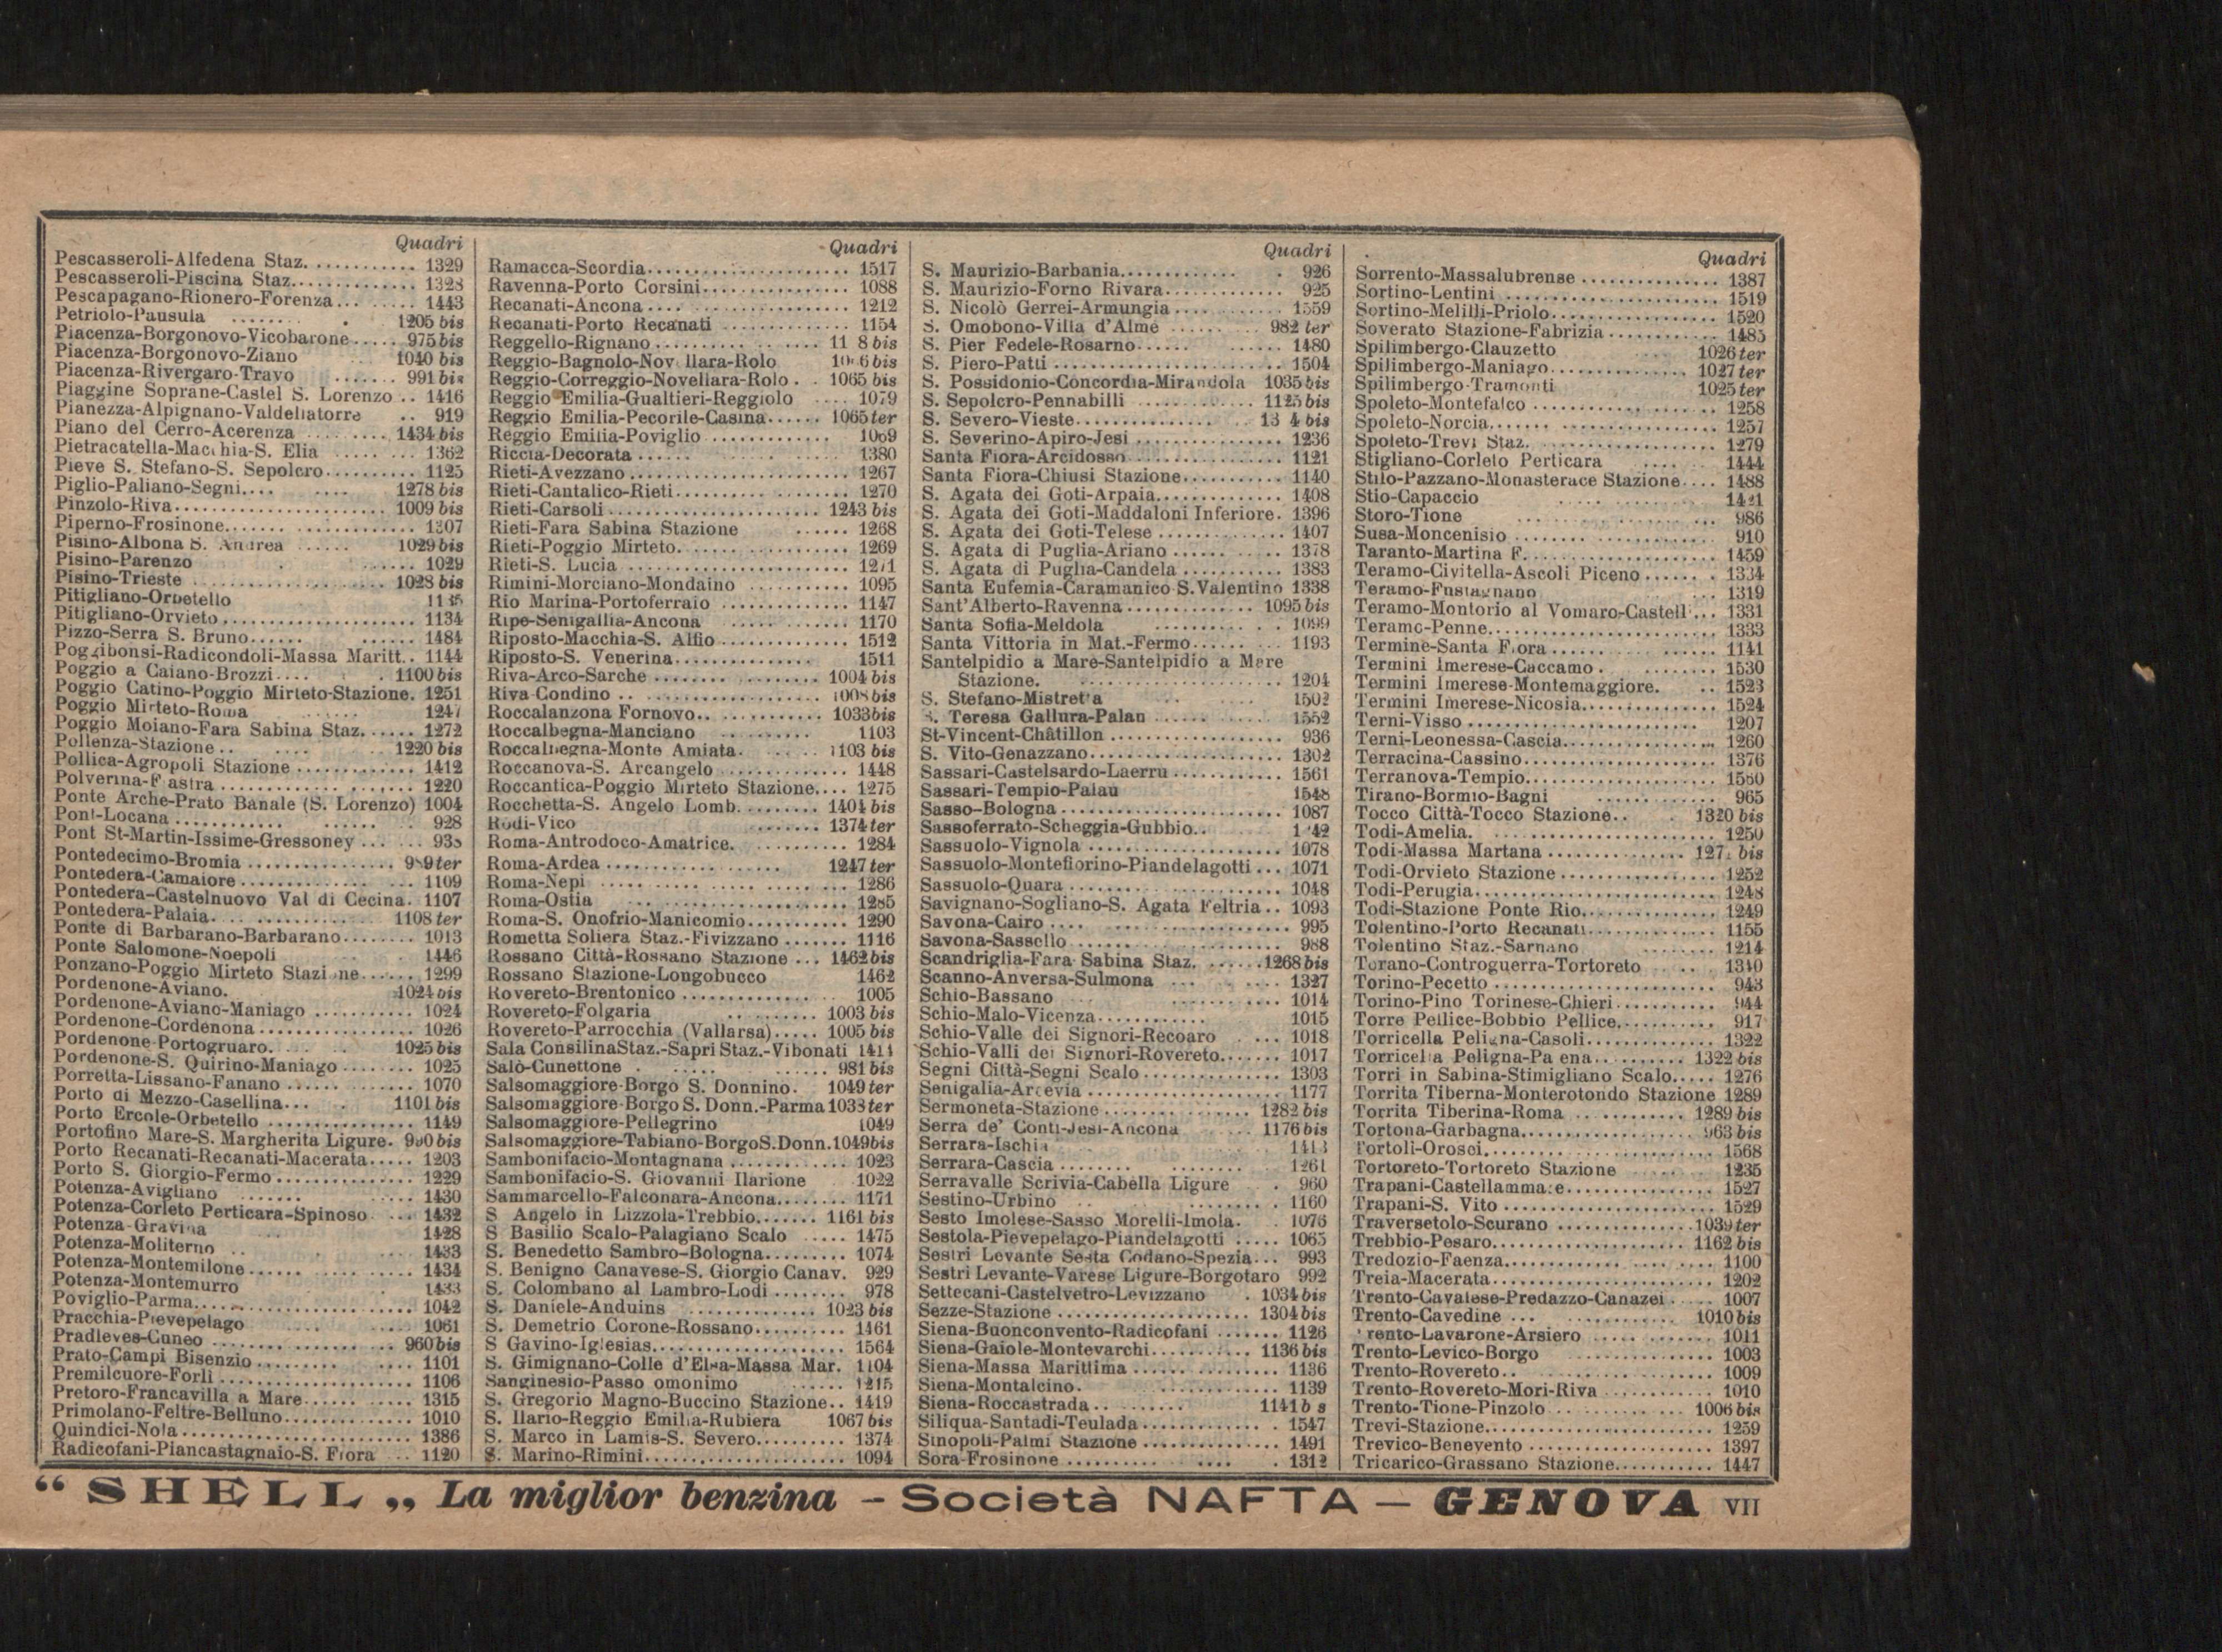 Quadri
Pescasseroli-Alfedena Staz. ........... 1329
Pescasseroli-Piscina Staz.............. 1328
Pescapagano-Rionero-Forenza... ...... 1443
Petriolo-Pausula ....... . 1205 bis
Piacenza-Borgonovo-Vicobarone..... 975 bis
Piacenza-Borgonovo-Ziano 1040 bis
Piacenza-Rivergaro-Travo ....... 991 bis
Piaggine Soprane-Castel S. Lorenzo .. 1416
Pianezza-Alpignano-Valdellatorre .. 919
Piano del Cerro-Acerenza ......... 1434 bis
Pietracatella-Macchia-S. Elia ........ 1362
Pieve S. Stefano-S. Sepolcro.......... 1125
Piglio-Paliano-Segni.... .... 1278 bis
Pinzolo-Riva....................... 1009 bis
Piperno-Frosinone.................... 1307
Pisino-Albona S. Andrea ...... 1029 bis
Pisino-Parenzo . ...... 1029
Pisino-Trieste ..................... 1028 bis
Pitigliano-Orbetello
Pitigliano-Orvieto........................ 1134
Pizzo-Serra S. Bruno...... ...... 1484
Poggibonsi-Radicondoli-Massa Maritt.. 1144
Poggio a Caiano-Brozzi.... . . 1100 bis
Poggio Catino-Poggio Mirteto-Stazione. 1251
Poggio Mirteto-Roma ...... 1247
Poggio Moiano-Fara Sabina Staz...... 1272
Pollenza-Stazione .. .... .. 1220 bis
Pollica-Agropoli Stazione ............. 1412
Polverina-Fiastra .................... 1220
Ponte Arche-Prato Banale (S. Lorenzo) 1004
Pont-Locana ........... ...... .. 928
Pont St-Martin-Issime-Gressoney ... ...
Pontedecimo-Bromia ................ 989 ter
Pontedera-Camaiore.............. ... 1109
Pontedera-Castelnuovo Val di Cecina. 1107
Pontedera-Palaia.... ............ 1108 ter
Ponte di Barbarano-Barbarano........ 1013
Ponte Salomone-Noepoli . . 1446
Ponzano-Poggio Mirteto Stazione...... 1299
Pordenone-Aviano. 1024 bis
Pordenone-Aviano-Maniago .......... 1024
Pordenone-Cordenona................. 1026
Pordenone-Portogruaro. ... .. 1025 bis
Pordenone-S. Quirino-Maniago........ 1025
Porretta-Lissano-Fanano ...... ...... 1070
Porto di Mezzo-Casellina... . 1101 bis
Porto Ercole-Orbetello ................ 1149
Portofino Mare-S. Margherita Ligure. 990 bis
Porto Recanati-Recanati-Macerata..... 1203
Porto S. Giorgio-Fermo................ 1229
Potenza-Avigliano ....... ..... 1430
Potenza-Corleto Perticara-Spinoso ... 1432
Potenza-Gravina ... 1428
Potenza-Moliterno .. . .... 1433
Potenza-Montemilone...... .......... 1434
Potenza-Montemurro . 1433
Poviglio-Parma........................ 1042
Pracchia-Pievepelago .... .... 1061
Pradleves-Cuneo ..................... 960 bis
Prato-Campi Bisenzio......... ..... 1101
Premilcuore-Forlì ..................... 1106
Pretoro-Francavilla a Mare...... ..... 1315
Primolano-Feltre-Belluno.............. 1010
Quindici-Nola......................... 1386
Radicofani-Piancastagnaio-S. Fiora ... 1120
Quadri
Ramacca-Scordia...................... 1517
Ravenna-Porto Corsini................ 1088
Recanati-Ancona .... ................ 1212
Recanati-Porto Recanati .............. 1154
Reggello-Rignano......... ..... bis
Reggio-Bagnolo-Novellara-Rolo bis
Reggio-Correggio-Novellara-Rolo . . 1065 bis
Reggio Emilia-Gualtieri-Reggiolo .... 1079
Reggio Emilia-Pecorile-Casina...... 1065 ter
Reggio Emilia-Poviglio ............. 1069
Riccia-Decorata ...... . ...... 1380
Rieti-Avezzano........................ 1267
Rieti-Cantalico-Rieti......... ....... 1270
Rieti-Carsoli....................... 1243 bis
Rieti-Fara Sabina Stazione ...... 1268
Rieti-Poggio Mirteto. ............... 1269
Rieti-S. Lucia ........................ 1271
Rimini-Morciano-Mondaino ............ 1095
Rio Marina-Portoferraio .............. 1147
Ripe-Senigallia-Ancona ..... ...... 1170
Riposto-Macchia-S. Alfio.............. 1512
Riposto-S. Venerina............... 1511
Riva-Arco-Sarche ........ ......... 1004 bis
Riva-Condino .. ................. 1008 bis
Roccalanzona Fornovo.. ........... 1033 bis
Roccalbegna-Manciano .......... 1103
Roccalbegna-Monte Amiata. ...... 1103 bis
Roccanova-S. Arcangelo .............. 1448
Roccantica-Poggio Mirteto Stazione.... 1275
Rocchetta-S. Angelo Lomb. ........ 1404 bis
Rodi-Vico ....... 1374 ter
Roma-Antrodoco-Amatrice. .......... 1284
Roma-Ardea ................. 1247 ter
Roma-Nepi ........................ 1286
Roma-Ostia ........................ 1285
Roma-S. Onofrio-Manicomio........... 1290
Rometta Soliera Staz.-Fivizzano ....... 1116
Rossano Città-Rossano Stazione ... 1462 bis
Rossano Stazione-Longobucco 1462
Rovereto-Brentonico .............. .. 1005
Rovereto-Folgaria .......... 1003 bis
Rovereto-Parrocchia (Vallarsa)..... 1005 bis
Sala Consilina Staz.-Sapri Staz.-Vibonati 1414
Salò-Cunettone . ..... ...... 981 bis
Salsomaggiore-Borgo S. Donnino. 1049 ter
Salsomaggiore-Borgo S. Donn.-Parma 1033 ter
Salsomaggiore-Pellegrino 1049
Salsomaggiore-Tabiano-Borgo S. Donn. 1049 bis
Sambonifacio-Montagnana ............ 1023
Sambonifacio-S. Giovanni Ilarione 1022
Sammarcello-Falconara-Ancona........ 1171
S. Angelo in Lizzola-Trebbio....... 1161 bis
S. Basilio Scalo-Palagiano Scalo ..... 1475
S. Benedetto Sambro-Bologna......... 1074
S. Benigno Canavese-S. Giorgio Canav. 929
S. Colombano al Lambro-Lodi ........ 978
S. Daniele-Anduins ............. 1023 bis
S. Demetrio Corone-Rossano.......... 1461
S Gavino-Iglesias..................... 1564
S. Gimignano-Colle d'Elsa-Massa Mar. 1104
Sanginesio-Passo omonimo ...... 1215
S. Gregorio Magno-Buccino Stazione.. 1419
S. Ilario-Reggio Emilia-Rubiera 1067 bis
S. Marco in Lamis-S. Severo......... 1374
S. Marino-Rimini...................... 1094
Quadri
S. Maurizio-Barbania............ . 926
S. Maurizio-Forno Rivara............. 925
S. Nicolò Gerrei-Armungia ............ 1559
S. Omobono-Villa d'Almè ...... ... 982 ter
S. Pier Fedele-Rosarno...... ...... 1480
S. Piero-Patti ......................... 1504
S. Possidonio-Concordia-Mirandola 1035 bis
S. Sepolcro-Pennabilli ............. 1125 bis
S. Severo-Vieste............... .. bis
S. Severino-Apiro-Jesi ................ 1236
Santa Fiora-Arcidosso ................. 1121
Santa Fiora-Chiusi Stazione........... 1140
S. Agata dei Goti-Arpaia.............. 1408
S. Agata dei Goti-Maddaloni Inferiore. 1396
S. Agata dei Goti-Telese .............. 1407
S. Agata di Puglia-Ariano ...... ... 1378
S. Agata di Puglia-Candela ........... 1383
Santa Eufemia-Caramanico S. Valentino 1338
Sant'Alberto-Ravenna .............. 1095 bis
Santa Sofia-Meldola .......... . . 1099
Santa Vittoria in Mat.-Fermo...... ... 1193
Santelpidio a Mare-Santelpidio a Mare
Stazione. ...................... 1204
S. Stefano-Mistretta .. .... 1502
S. Teresa Gallura-Palau ...... ..... 1552
St-Vincent-Châtillon .................. 936
S. Vito-Genazzano..................... 1302
Sassari-Castelsardo-Laerru ............ 1561
Sassari-Tempio-Palau 1548
Sasso-Bologna ........................ 1087
Sassoferrato-Scheggia-Gubbio..
Sassuolo-Vignola ...................... 1078
Sassuolo-Montefiorino-Piandelagotti ... 1071
Sassuolo-Quara ....................... 1048
Savignano-Sogliano-S. Agata Feltria.. 1093
Savona-Cairo .... .................. 995
Savona-Sassello ...................... 988
Scandriglia-Fara Sabina Staz. ...... 1268 bis
Scanno-Anversa-Sulmona ... .. .... 1327
Schio-Bassano ............ 1014
Schio-Malo-Vicenza............ 1015
Schio-Valle dei Signori-Recoaro . ... 1018
Schio-Valli dei Signori-Rovereto...... 1017
Segni Città-Segni Scalo............... 1303
Senigalia-Arcevia ..................... 1177
Sermoneta-Stazione ................ 1282 bis
Serra de' Conti-Jesi-Ancona ...... 1176 bis
Serrara-Ischia 1413
Serrara-Cascia ........ ........ 1261
Serravalle Scrivia-Cabella Ligure . 960
Sestino-Urbino .. ........ . 1160
Sesto Imolese-Sasso Morelli-Imola. . 1076
Sestola-Pievepelago-Piandelagotti ..... 1065
Sestri Levante Sesta Godano-Spezia... 993
Sestri Levante-Varese Ligure-Borgotaro 992
Settecani-Castelvetro-Levizzano . 1034 bis
Sezze-Stazione ..................... 1304 bis
Siena-Buonconvento-Radicofani ....... 1126
Siena-Gaiole-Montevarchi........... 1136 bis
Siena-Massa Marittima ............... 1136
Siena-Montalcino. .............. 1139
Siena-Roccastrada .. ....... 1141 b s
Siliqua-Santadi-Teulada ............ . 1547
Sinopoli-Palmi Stazione ............... 1491
Sora-Frosinone .......... .... . 1312
Quadri
Sorrento-Massalubrense ............... 1387
Sortino-Lentini ....................... 1519
Sortino-Melilli-Priolo.................. 1520
Soverato Stazione-Fabrizia ............ 1485
Spilimbergo-Clauzetto .... 1026 ter
Spilimbergo-Maniago............... 1027 ter
Spilimbergo-Tramonti 1025 ter
Spoleto-Montefalco .................... 1258
Spoleto-Norcia........................ 1257
Spoleto-Trevi Staz. ................... 1279
Stigliano-Corleto Perticara .... . 1444
Stilo-Pazzano-Monasterace Stazione.... 1488
Stio-Capaccio ..... ........ 1421
Storo-Tione ... ............... 986
Susa-Moncenisio ........ ............ 910
Taranto-Martina F..................... 1459
Teramo-Civitella-Ascoli Piceno...... . 1334
Teramo-Fustagnano ... 1319
Teramo-Montorio al Vomaro-Castell ... 1331
Teramo-Penne......................... 1333
Termine-Santa Fiora ......... ....... 1141
Termini Imerese-Caccamo . ........ 1530
Termini Imerese-Montemaggiore. .. 1523
Termini Imerese-Nicosia.............. 1524
Terni-Visso .......................... 1207
Terni-Leonessa-Cascia................. 1260
Terracina-Cassino..................... 1376
Terranova-Tempio..................... 1550
Tirano-Bormio-Bagni ............ 965
Tocco Città-Tocco Stazione.. . 1320 bis
Todi-Amelia. ....................... 1250
Todi-Massa Martana ............... bis
Todi-Orvieto Stazione ................. 1252
Todi-Perugia.......................... 1248
Todi-Stazione Ponte Rio............... 1249
Tolentino-Porto Recanati.............. 1155
Tolentino Staz.-Sarnano ........ 1214
Torano-Controguerra-Tortoreto .. . 1310
Torino-Pecetto ........................ 943
Torino-Pino Torinese-Chieri........... 944
Torre Pellice-Bobbio Pellice........... 917
Torricella Peligna-Casoli.............. 1322
Torricella Peligna-Palena.......... 1322 bis
Torri in Sabina-Stimigliano Scalo..... 1276
Torrita Tiberna-Monterotondo Stazione 1289
Torrita Tiberina-Roma .. ......... 1289 bis
Tortona-Garbagna.................. 963 bis
Tortoli-Orosei........................ 1568
Tortoreto-Tortoreto Stazione .... . 1235
Trapani-Castellammare................ 1527
Trapani-S. Vito ....................... 1529
Traversetolo-Scurano ...............1039 ter
Trebbio-Pesaro..................... 1162 bis
Tredozio-Faenza............ .... .... 1100
Treia-Macerata........................ 1202
Trento-Cavalese-Predazzo-Canazei ..... 1007
Trento-Cavedine ... ............ 1010 bis
Trento-Lavarone-Arsiero ..... ....... 1011
Trento-Levico-Borgo .......... 1003
Trento-Rovereto.. ................ 1009
Trento-Rovereto-Mori-Riva ............ 1010
Trento-Tione-Pinzolo .............. 1006 bis
Trevi-Stazione........................ 1259
Trevico-Benevento .................... 1397
Tricarico-Grassano Stazione........... 1447
“ SHELL „ La miglior benzina – Società NAFTA – GENOVA VII